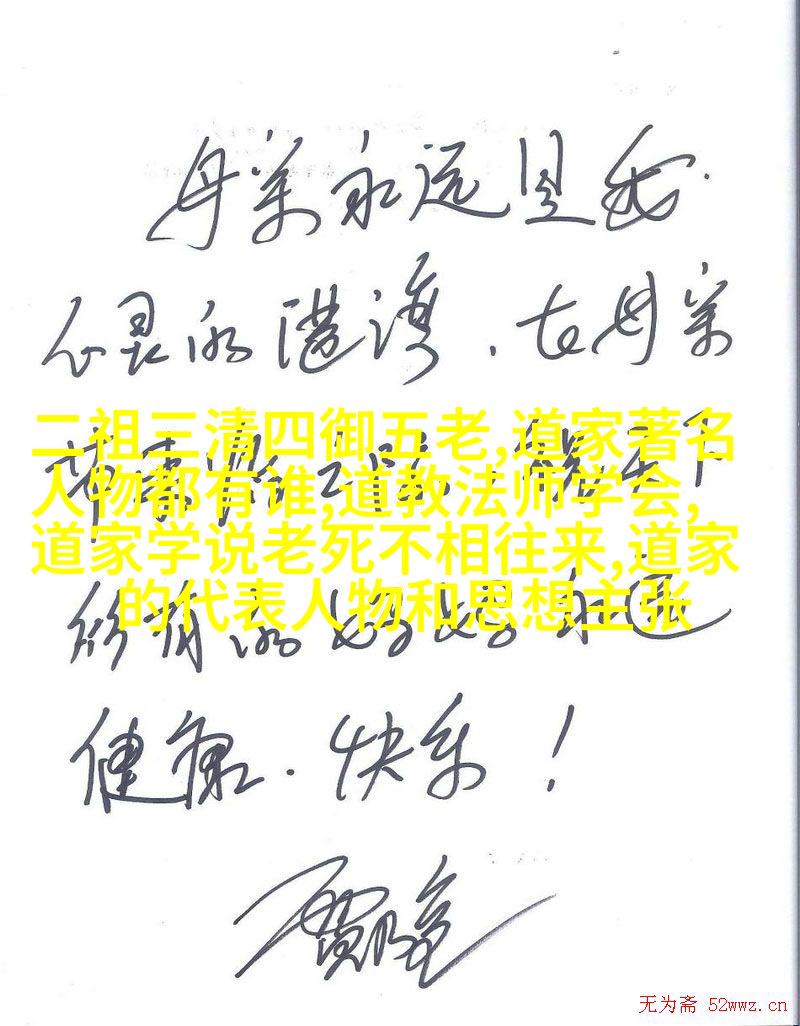 母亲永远是我
心灵的港湾.在母亲
二祖三清四御五老,道家著名
人物都有谁,道教法师学会,
道家学说老死不相往来,道家
的代表人物和思想主张
天下
所有的妈妈
健康.快乐!
无为斋 52wwz.cn